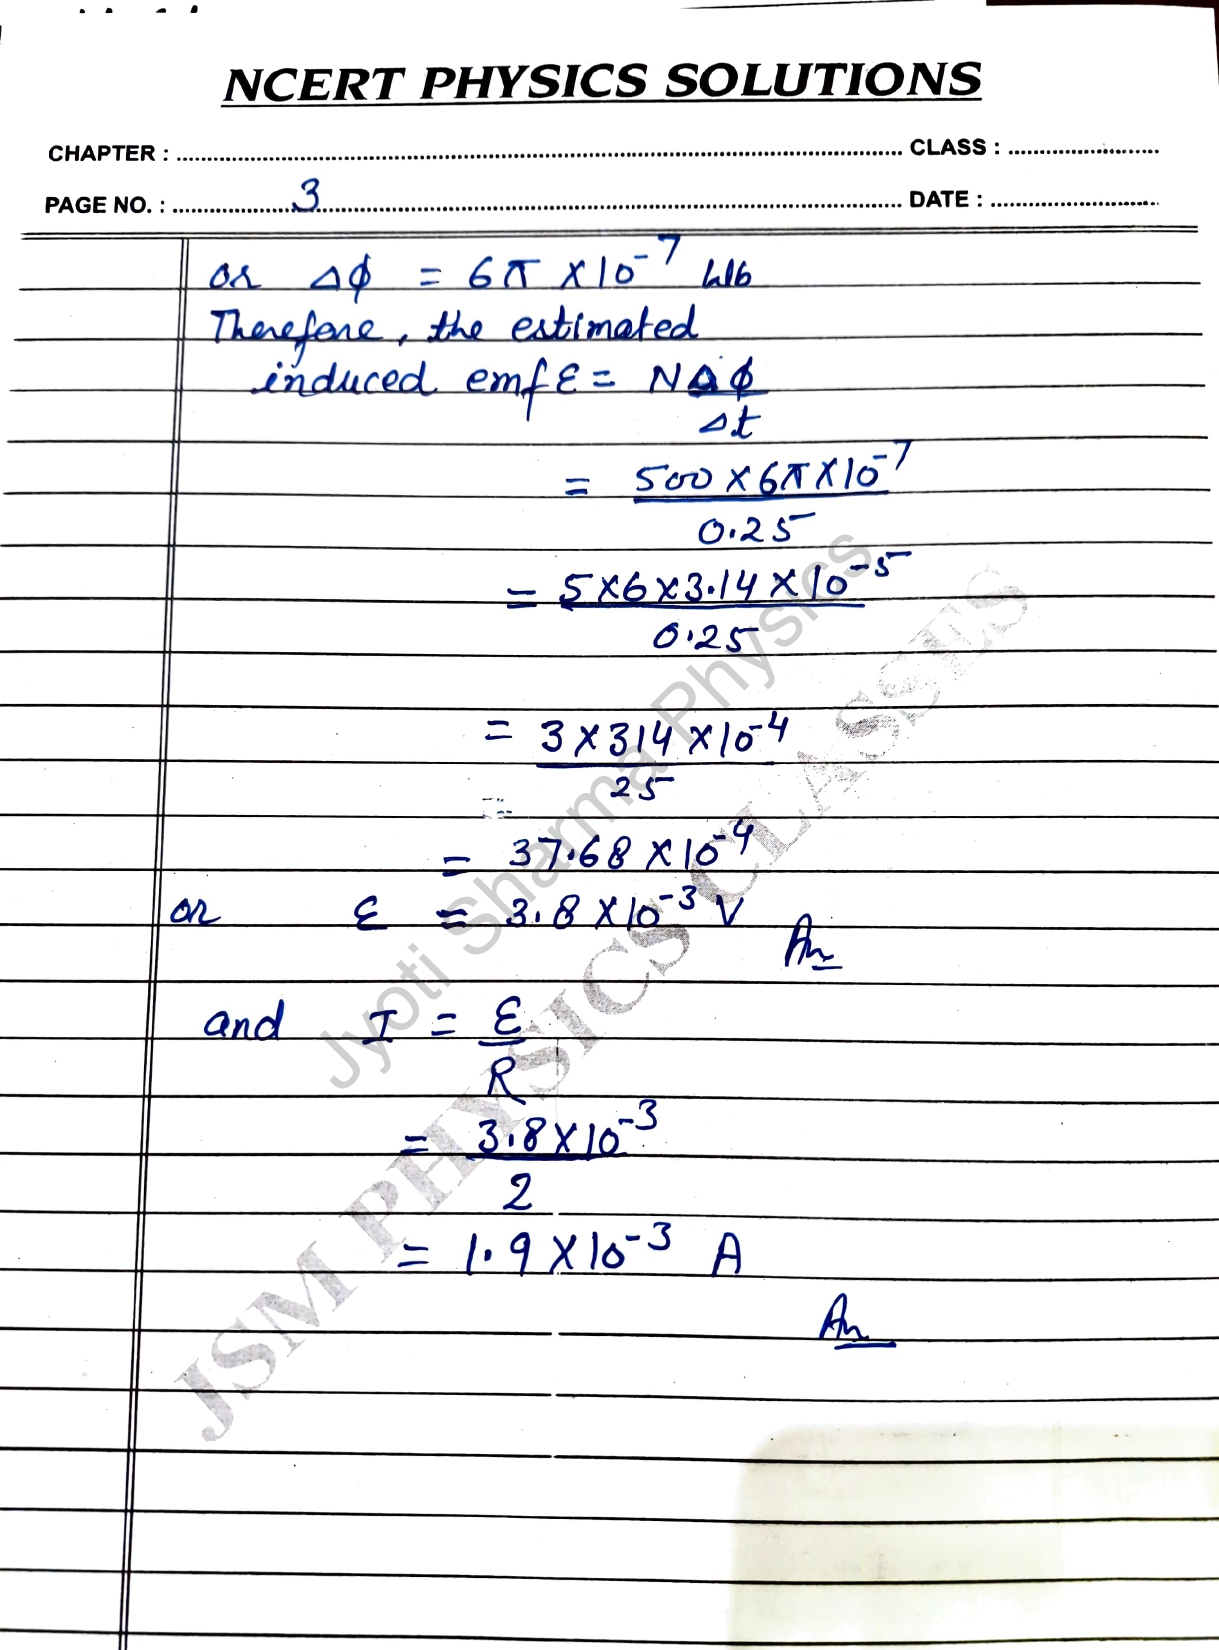 NCERT PHYSICS SOLUTIONS
CHAPTER : ........ CLASS : ........
PAGE NO. : ........3........ DATE : ........
or Δφ = 6π × 10⁻⁷ Wb
Therefore, the estimated
induced emf ε = NΔφ
Δt
= 500 × 6π × 10⁻⁷
0.25
= 5 × 6 × 3.14 × 10⁻⁵
0.25
= 3 × 314 × 10⁻⁴
25
= 37.68 × 10⁻⁴
or ε = 3.8 × 10⁻³ V
An
and I = ε
R
= 3.8 × 10⁻³
2
= 1.9 × 10⁻³ A
An
Jyoti Sharma Physics
JSM PHYSICS CLASSES